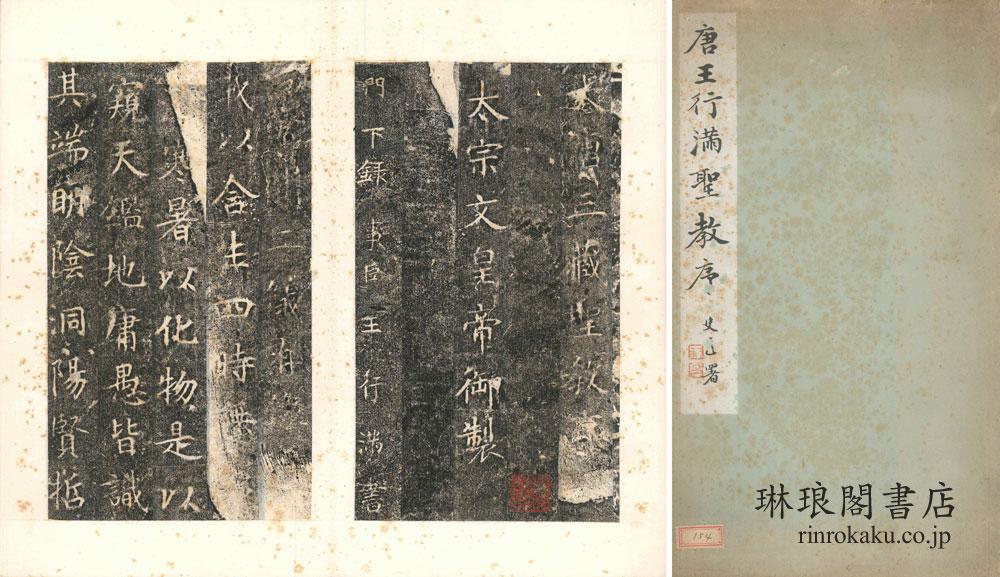 三藏聖教
太宗文皇帝御製
門下録事臣王行滿書
二儀有
載以含生四時無
寒暑以化物是以
窺天鑑地庸愚皆識
其端眀陰洞陽賢哲
唐王行滿聖教序
署
154
琳琅閣書店
rinrokaku.co.jp